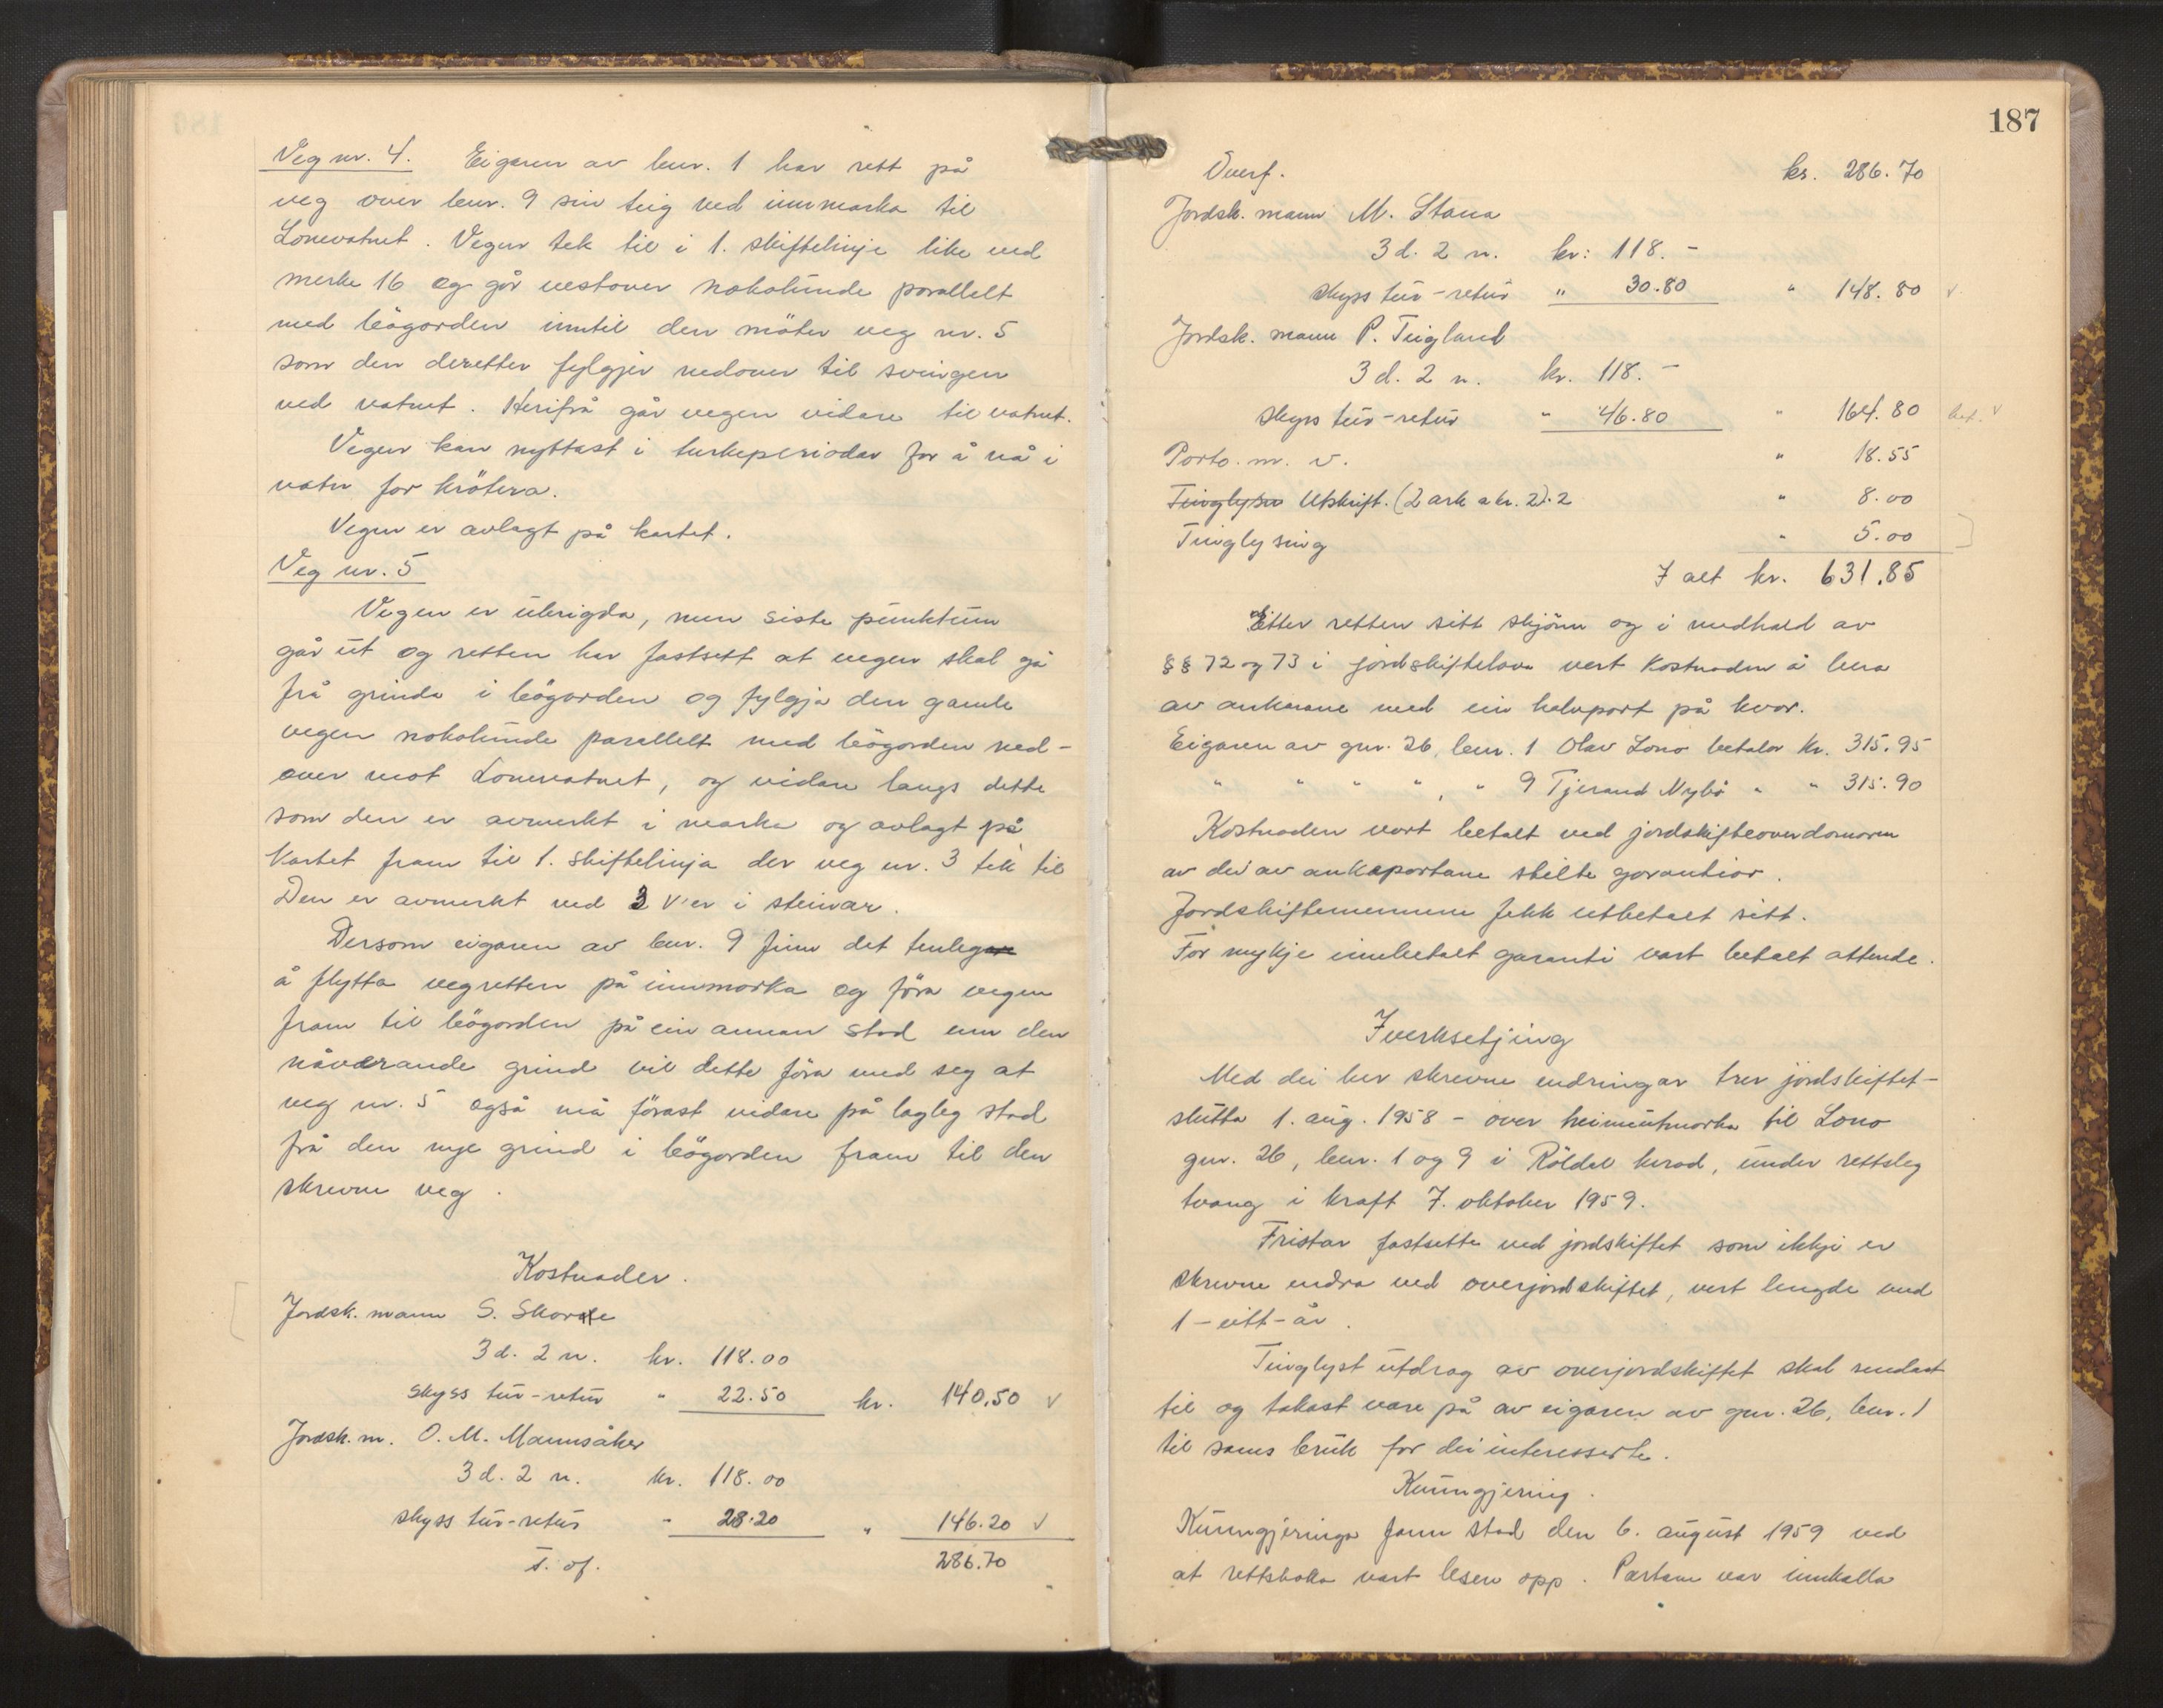 Veg nr. 4. Eigaren av bnr. 1 har rett på
veg over bnr. 9 sin teig ved innmarka til
Lonevatnet. Vegen tek til i 1. skiftelinje like ved
merke 16 og går vestover nokolunde parallelt
med bögarden inntil den möter veg nr. 5
som den deretter fylgjer nedover til svingen
ved vatnet. Herifrå går vegen vidare til vatnet.
Vegen kan nyttast i turkeperiodar for å nå i
vatn for krötera.
Vegen er avlagt på kartet.
Veg nr. 5
Vegen er ubrigda, men siste punktum
går ut og retten har fastsett at vegen skal gå
frå grinda i bögarden og fylgja den gamle
vegen nokolunde parallelt med bögarden ned-
over mot Lonevatnet, og vidare langs dette
som den er avmerkt i marka og avlagt på
kartet fram til 1. skiftelinja der veg nr. 3 tek til
Den er avmerkt ved 3 V'er i steinar.
Dersom eigaren av bnr. 9 finn det tenlegare
å flytta vegretten på innmarka og föra vegen
fram til bögarden på ein annan stad enn den
nåverande grind vil dette föra med seg at
veg nr. 5 også må förast vidare på lagleg stad
frå den nye grind i bögarden fram til den
skrevne veg.
Kostnader.
Jordsk. mann S. Skorve
3 d. 2 n. kr. 118.00
skyss tur-retur " 22.50 kr. 140.50 v
Jordsk. m. O. M. Mannsåker
3 d. 2 n. kr. 118.00
skyss tur-retur " 28.20 " 146.20 v
T. of. 286.70
187
Overf. kr. 286.70
Jordsk. mann M. Stana
3 d. 2 n. kr: 118.-
skyss tur-retur " 30.80 " 148.80 v
Jordsk. mann P. Teigland
3 d. 2 n. kr. 118.-
skyss tur-retur " 46.80 " 164.80 bet. v
Porto. m. v. " 18.55
Tinglysn Utskrift. (2 ark a kr. 2).2 " 8.00
Tinglysing " 5.00
I alt kr. 631.85
Etter retten sitt skjönn og i medhald av
§§ 72 og 73 i jordskiftelova vert kostnaden å bera
av ankarane med ein halvpart på kvar.
Eigaren av gnr. 26, bnr. 1 Olav Lono betalar kr. 315.95
" " " " , " 9 Tjerand Nybö " " 315.90
Kostnaden vart betalt ved jordskifteoverdomaren
av dei av ankepartane stilte garantiar.
Jordskiftemennene fekk utbetalt sitt.
For mykje innbetalt garanti vart betalt attende.
Iverksetjing
Med dei her skrevne endringar trer jordskiftet -
slutta 1. aug. 1958 - over heimeutmarka til Lono
gnr. 26, bnr. 1 og 9 i Röldal herad, under rettsleg
tvang i kraft 7. oktober 1959.
Fristar fastsette ved jordskiftet som ikkje er
skrevne endra ved overjordskiftet, vert lengde med
1 - eitt - år.
Tinglyst utdrag av overjordskiftet skal sendast
til og takast vare på av eigaren av gnr. 26, bnr. 1
til sams bruk for dei interesserte.
Kunngjering.
Kunngjeringa fann stad den 6. august 1959 ved
at rettsboka vart lesen opp. Partane var innkalla